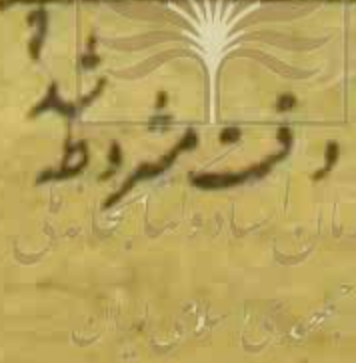 شد و
وقت مشروطه
سازمان اسناد و کتابخانه ملی
جمهوری اسلامی ایران